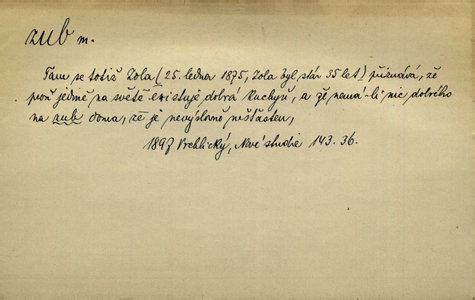 zub m.
Tam se totiž Zola (25. ledna 1875, Zola byl stár 35 let) přiznává, že
proň jedině na světě existuje dobrá kuchyň, a že nemá-li nic dobrého
na zub doma, že je nevýslovně nešťasten,
1897 Vrchlický, Nové studie 143. 36.